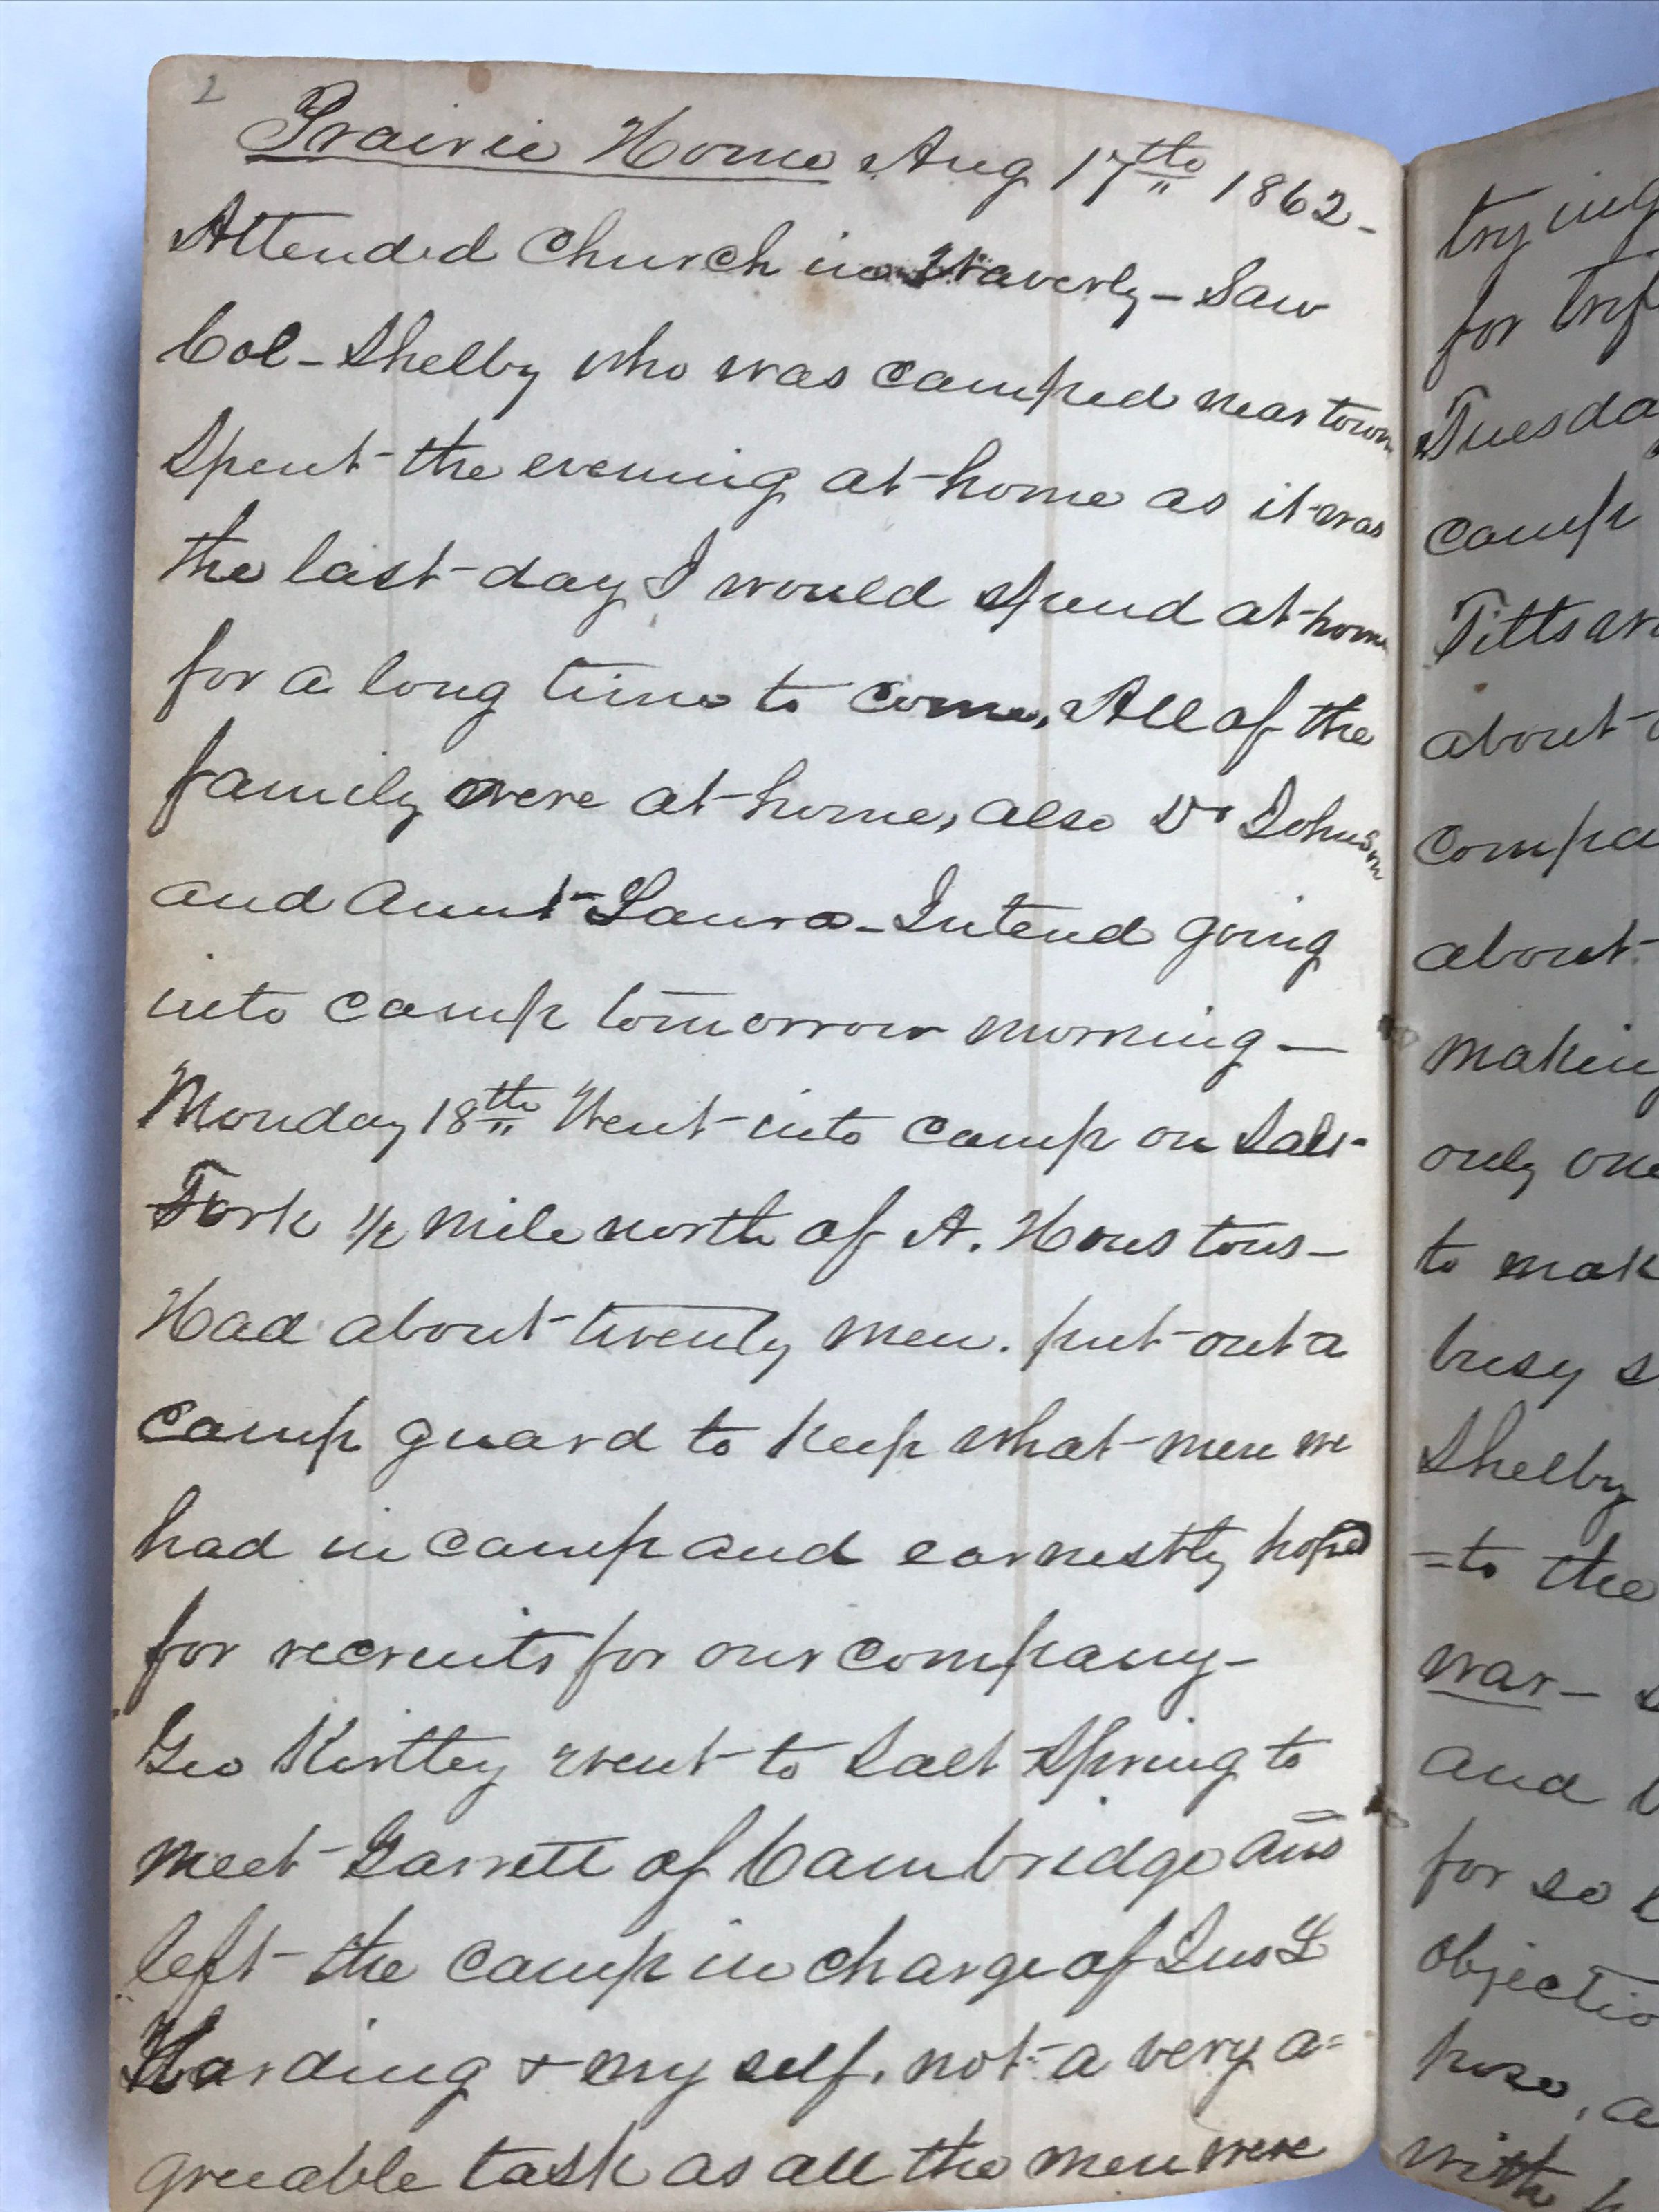 2
Prairie Home Aug 17th 1862-
Attended Church in Waverly - Saw
Col - Shelby who was camped near town
Spent the evening at home as it was
the last day I would spend at home
for a long time to come, All of the
family were at home, also Dr Johnson
and Aunt Laura - Intend going
into camp tomorrow morning -
Monday 18th Went into camp on Salt
Fork 1/2 mile north of A. Houstons -
Had about twenty men. put out a
camp guard to keep what men we
had in camp and earnestly hoped
for recruits for our company -
Geo Kirtley went to Salt Spring to
meet Garrett of Cambridge and
left the camp in charge of Jno L
Harding & my self, not a very a=
greeable task as all the men were
trying
for
Tuesda
camp
Titts
about
compa
about
making
only one
to mak
busy s
Shelby
=to the
war -
and
for so l
objectio
pose, a
with